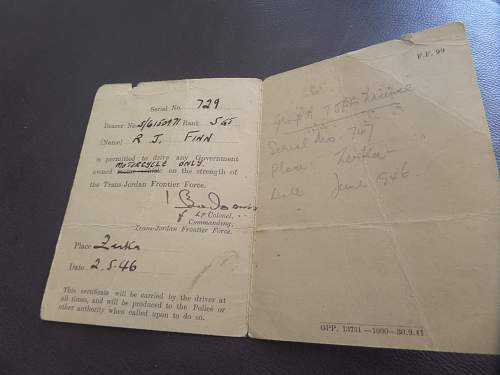 Serial No. 729
Bearer No. Rank SGT
(Name) R J. FINN
is permitted to drive any Government
MOTORCYCLE ONLY.
owned vehicle on the strength of
the Trans-Jordan Frontier Force.
Lt Colonel,
Commanding,
Trans-Jordan Frontier Force.
Place Zerka
Date 2.5.46
This certificate will be carried by the driver at
all times, and will be produced to the Police or
other authority when called upon to do so.
F.F. 99
Serial No. 767
Place Zerka
Date June 1946
GPP. 13731—1000—30.9.41